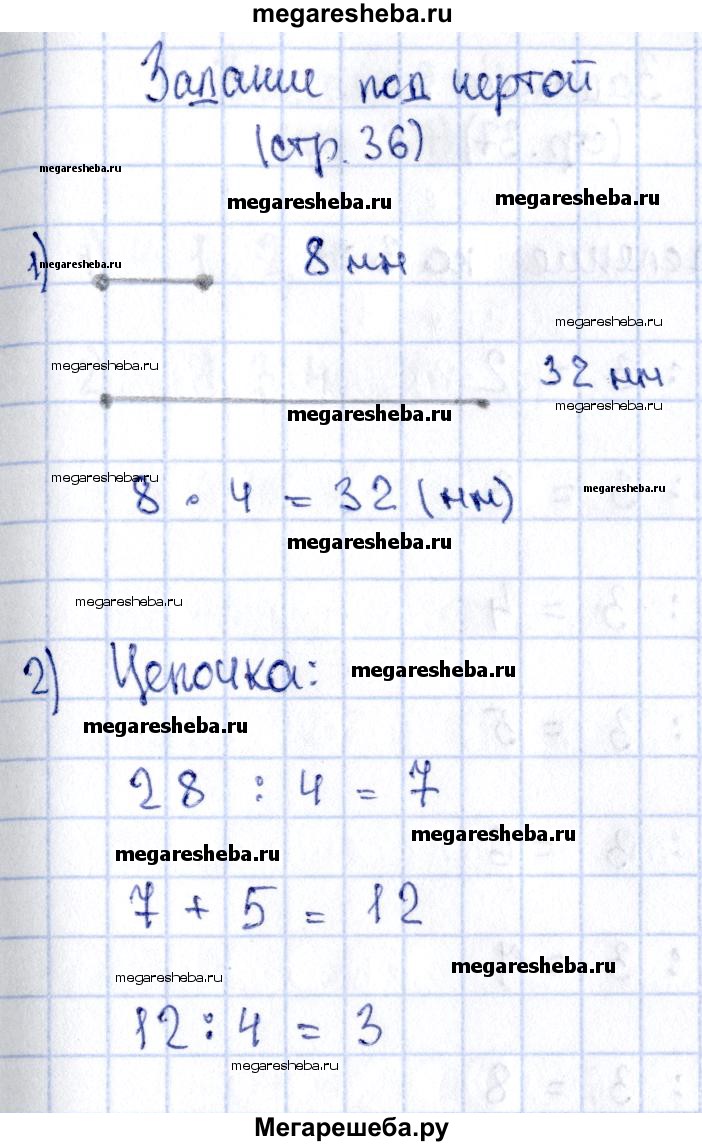 megaresheba.ru
Задание под чертой
(стр. 36)
megaresheba.ru
megaresheba.ru megaresheba.ru
1) megaresheba.ru 8 мм
megaresheba.ru
megaresheba.ru
32 мм
megaresheba.ru
megaresheba.ru
megaresheba.ru
8 · 4 = 32 (мм)
megaresheba.ru
megaresheba.ru
megaresheba.ru
2) Цепочка:
megaresheba.ru
megaresheba.ru
28 : 4 = 7
megaresheba.ru
megaresheba.ru
7 + 5 = 12
megaresheba.ru
megaresheba.ru
12 : 4 = 3
megaresheba.ru
Мегарешеба.ру